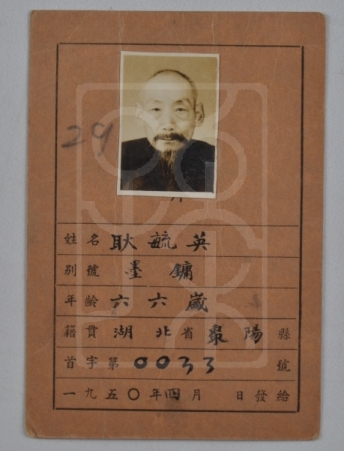 29
姓名 耿毓英
別號 墨鏞
年齡 六六歲
籍貫 湖北省棗陽縣
首字第0033號
一九五〇年四月 日發給